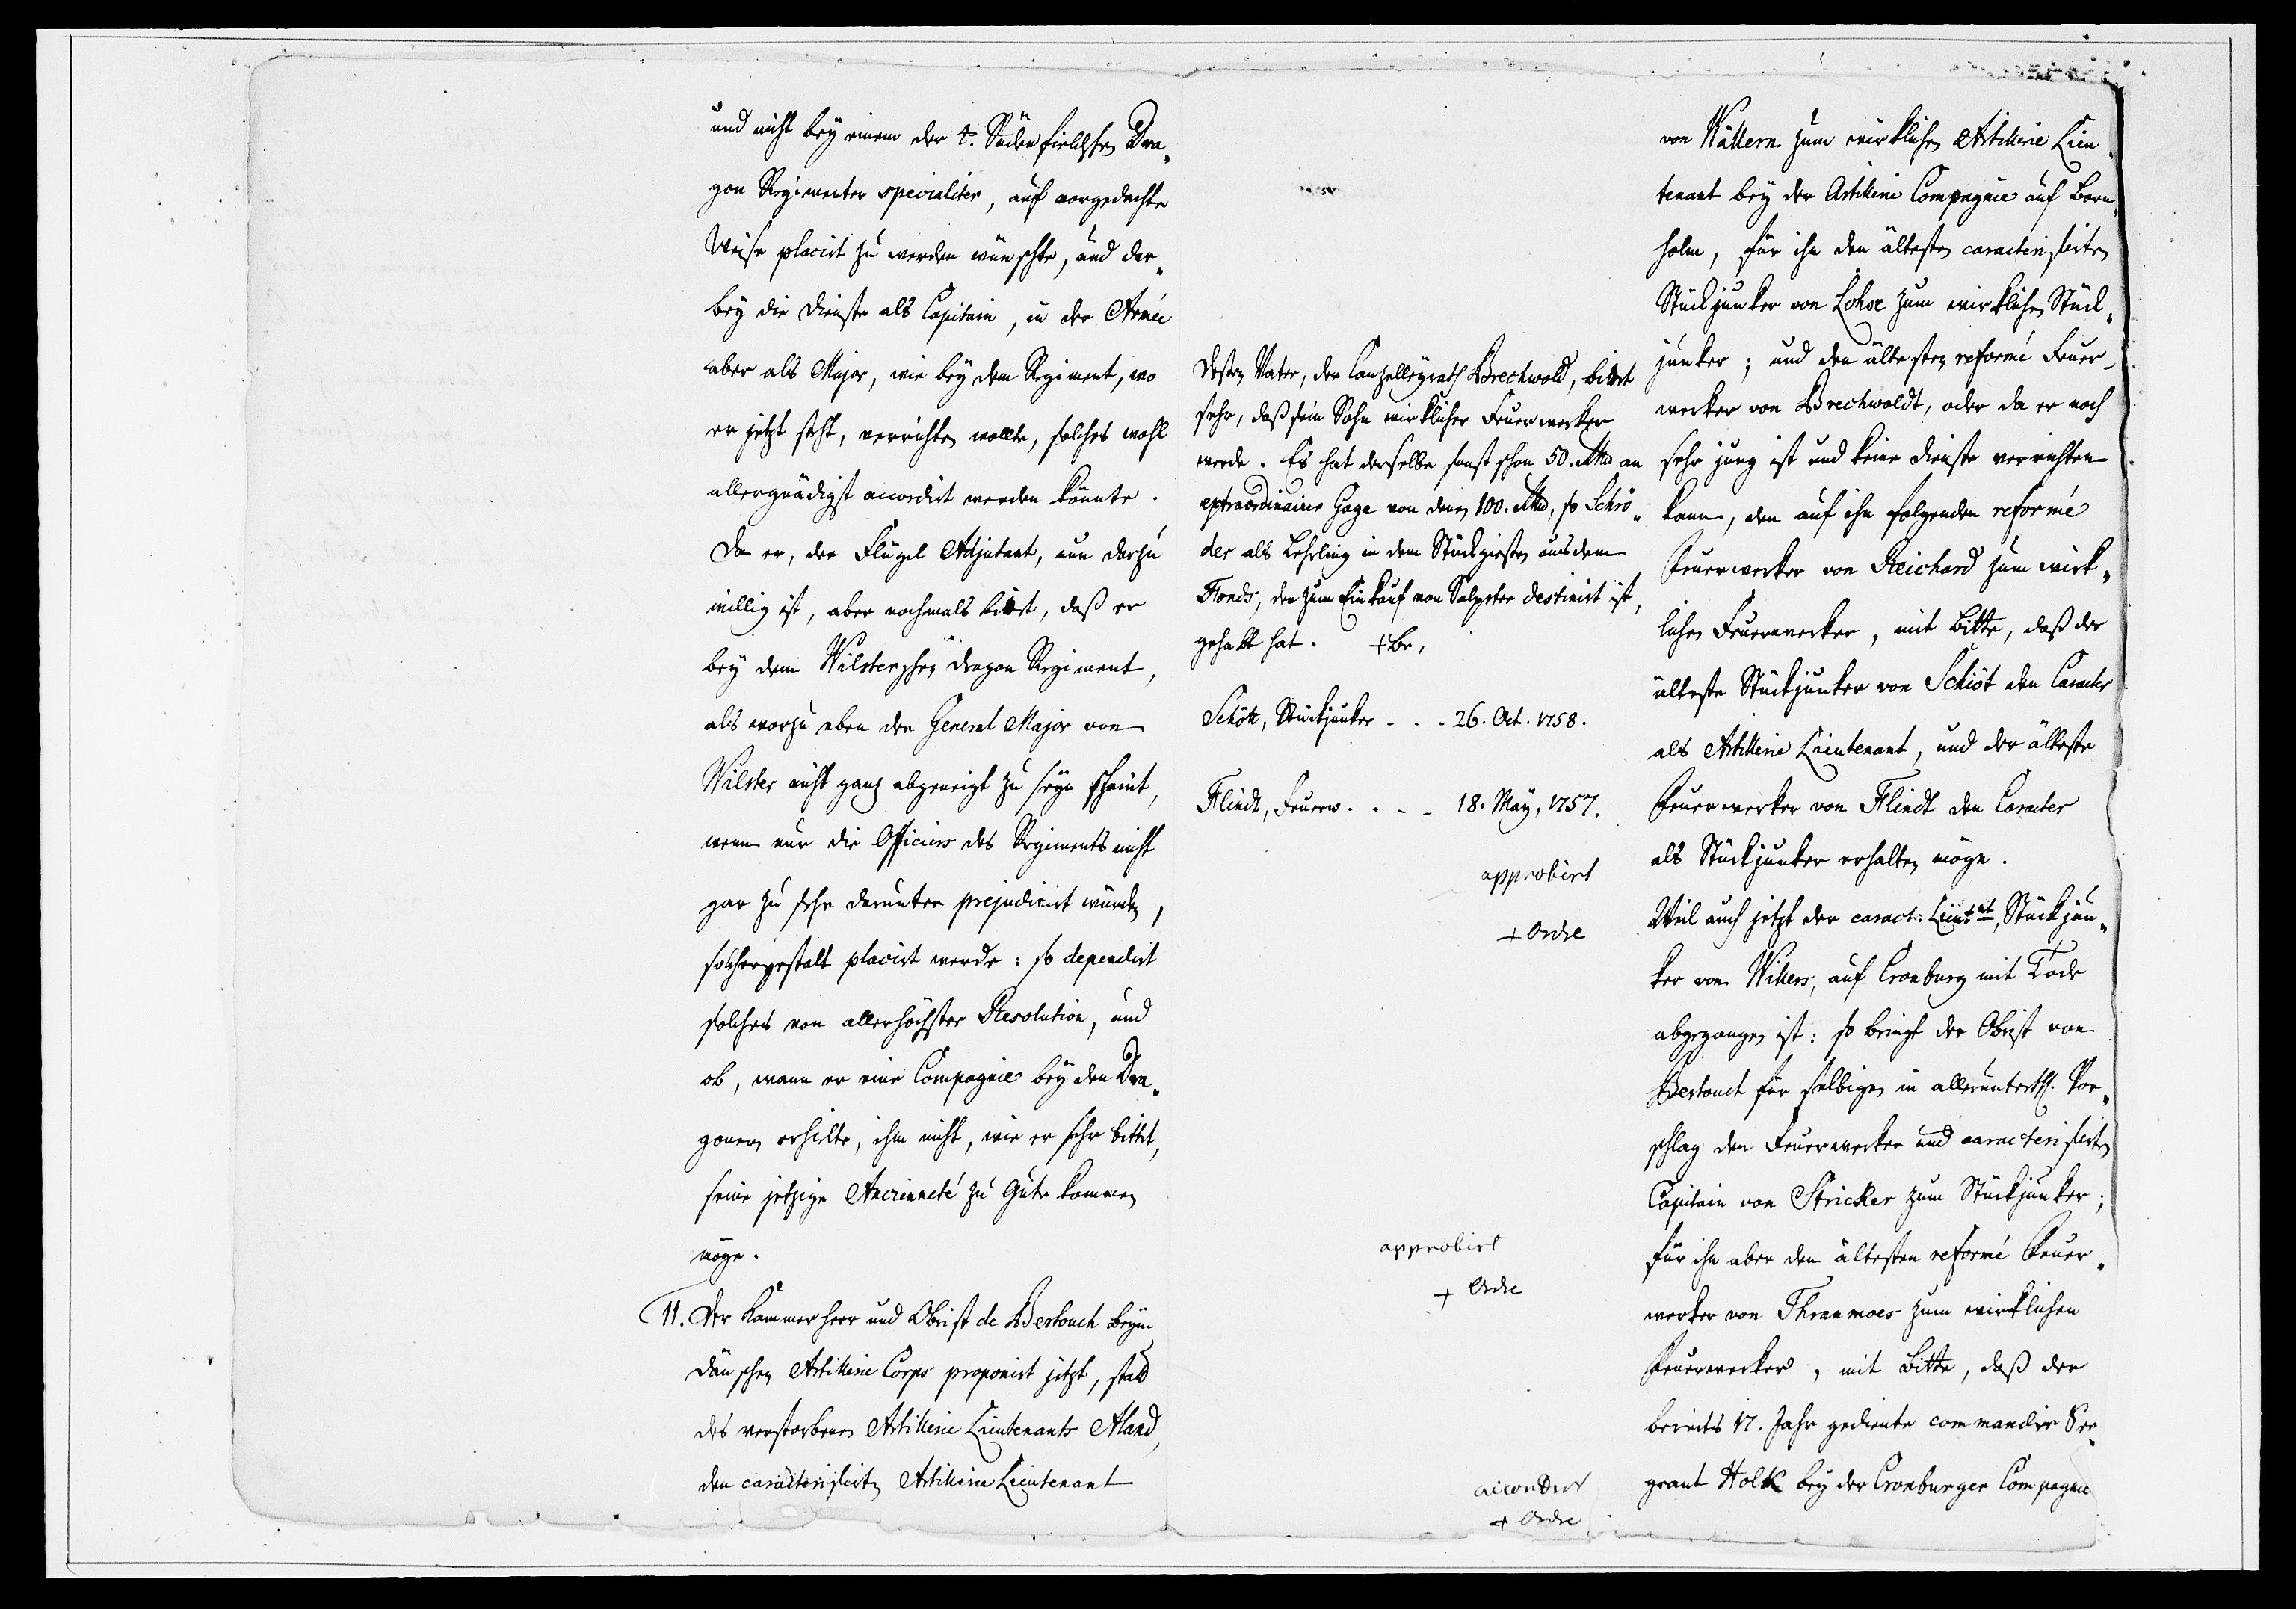 und nicht bey einem der 4. Südenfieldschen Dra„
gon Regimenter specialiter, auf vorgedachte
Weise placirt zu werden wünschte, und dar„
bey die Dienste als Capitain, in der Armée
aber als Major, wie bey dem Regiment, wo
er jetzt steht, verrichten wollte, solches wohl
allergnädigst accordirt werden könnte.
Da er, der Flügel Adjutant, nun darzu
willig ist, aber nochmals bittet, daß er
bey dem Wilsterschen Dragon Regiment,
als worzu eben der General Major von
Wilster nicht ganz abgeneigt zu seyn scheint,
wenn nur die Officiers des Regiments nicht
gar zu sehr darunter prejudicirt würden,
solchergestalt placirt werde: so dependirt
solches von allerhöchster Resolution, und
ob, wann er eine Compagnie bey den Dra„
gonern erhielte, ihm nicht, wie er sehr bittet,
seine jetzige Ancienneté zu Gute kommen
möge.
11. Der Kammerherr und Obrist de Bertouch beym
Dänschen Artillerie Corps proponirt jetzt, statt
des verstorbenen Artillerie Lieutenants Aland,
den caracterisirten Artillerie Lieutenant
Desten Vater, der Canzelleyrath Brechwold, bittet
sehr, daß sein Sohn wirklicher Feuerwerker
werde. Es hat derselbe sonst schon 50. Rthd an
extraordinairer Gage von denen 100. Rthd, so Schrö„
der als Lehrling in dem Stückgießen aus dem
Fonds, der zum Einkauf von Salpeter destinirt ist,
gehabt hat. +br,
Schött, Stückjunker - - - 26. Oct. 1758.
Flindt, Feuerw. - - - 18. May, 1757.
approbirt
+ Ordre
approbirt
+ Ordre
accordirt
+ Ordre
von Wällern zum wirklichen Artillerie Lieu„
tenant bey der Artillerie Compagnie auf Born„
holm, für ihn den ältesten caracterisirten
Stückjunker von Lohse zum wirklichen Stück„
junker; und den ältesten reformé Feuer„
werker von Brechwoldt, oder da er noch
sehr jung ist und keine Dienste verrichten
kann, den auf ihn folgenden reformé
Feuerwerker von Reichard zum wirk„
lichen Feuerwerker, mit Bitte, daß der
älteste Stückjunker von Schiöt den Caracter
als Artillerie Lieutenant, und der älteste
Feuerwerker von Flindt den Caracter
als Stückjunker erhalten möge.
Weil auch jetzt der caract: Lieutnt, Stückjun„
ker von Willers, auf Cronburg mit Tode
abgegangen ist: so bringt der Obrist von
Bertouch für selbigen in allerunterth. Vor„
schlag den Feuerwerker und caracterisirten
Capitain von Stricker zum Stückjunker;
für ihn aber den ältesten reformé Feuer„
werker von Thranmoes zum wirklichen
Feuerwerker, mit Bitte, daß der
bereits 17. Jahr gediente commandir Ser„
geant Holk bey der Cronburger Compagnie